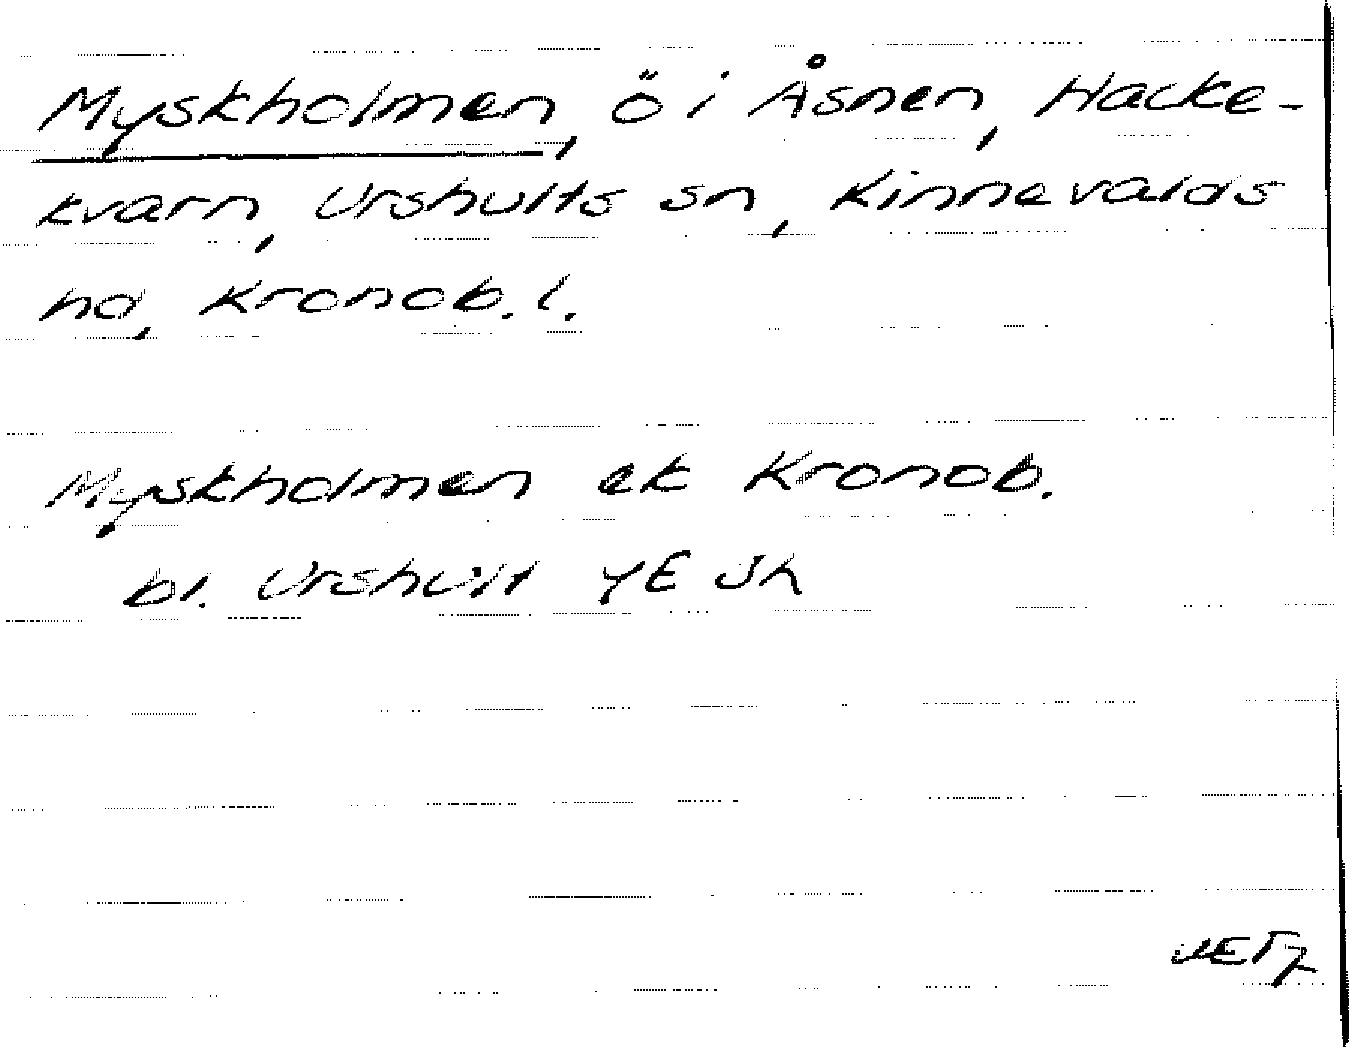 Myskholmen, ö i Åsnen, Hacke-
kvarn, Urshults sn, Kinnevalds
hd, Kronob. l.
Myskholmen ek Kronob.
bl. Urshult